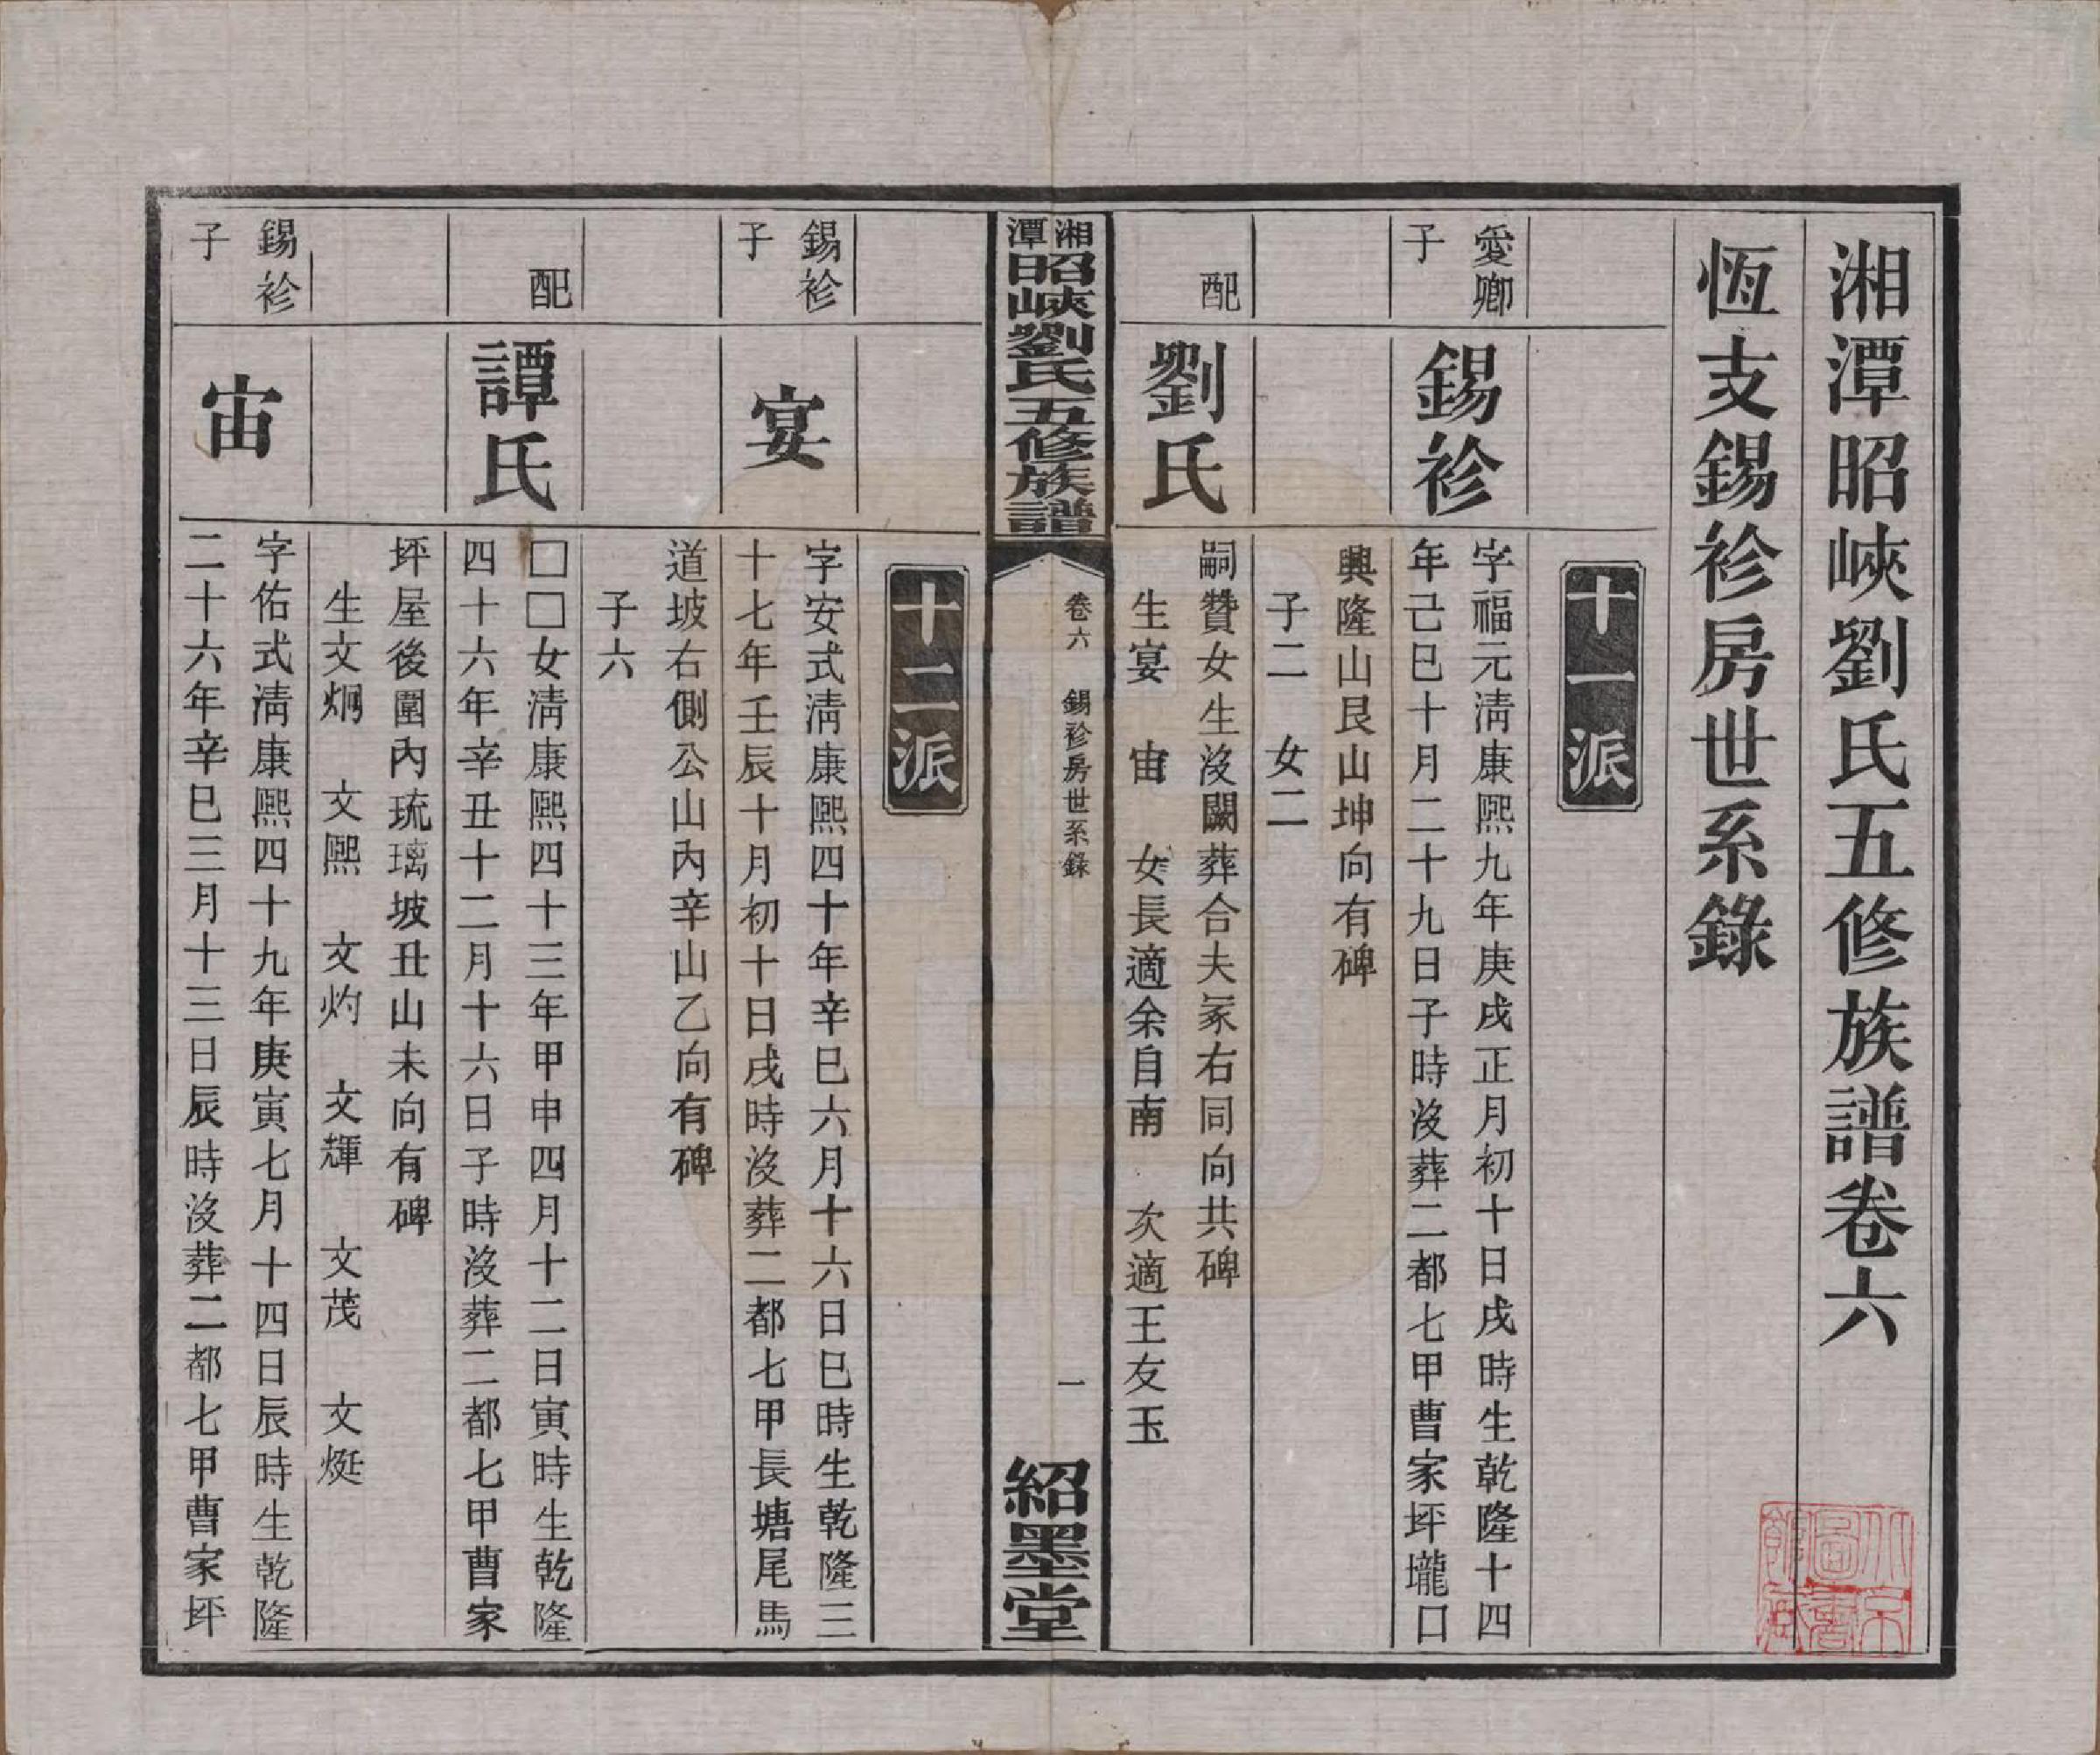 湘潭昭峽劉氏五修族譜卷六
恆支錫袗房世系錄
十一派
愛卿
子
錫袗
字福元淸康熙九年庚戌正月初十日戌時生乾隆十四
年己巳十月二十九日子時沒葬二都七甲曹家坪壠口
興隆山艮山坤向有碑
子二　女二
配
劉氏
嗣贊女生沒闕葬合夫冢右同向共碑
生宴　宙　女長適余自南　次適王友玉
湘潭昭峽劉氏五修族譜
卷六　錫袗房世系錄
一
紹墨堂
十二派
錫袗
子
宴
字安式淸康熙四十年辛巳六月十六日巳時生乾隆三
十七年壬辰十月初十日戌時沒葬二都七甲長塘尾馬
道坡右側公山內辛山乙向有碑
子六
配
譚氏
□□女淸康熙四十三年甲申四月十二日寅時生乾隆
四十六年辛丑十二月十六日子時沒葬二都七甲曹家
坪屋後圍內琉璃坡丑山未向有碑
生文炯　文熙　文灼　文輝　文茂　文烶
錫袗
子
宙
字佑式淸康熙四十九年庚寅七月十四日辰時生乾隆
二十六年辛巳三月十三日辰時沒葬二都七甲曹家坪
北京
圖書
館藏